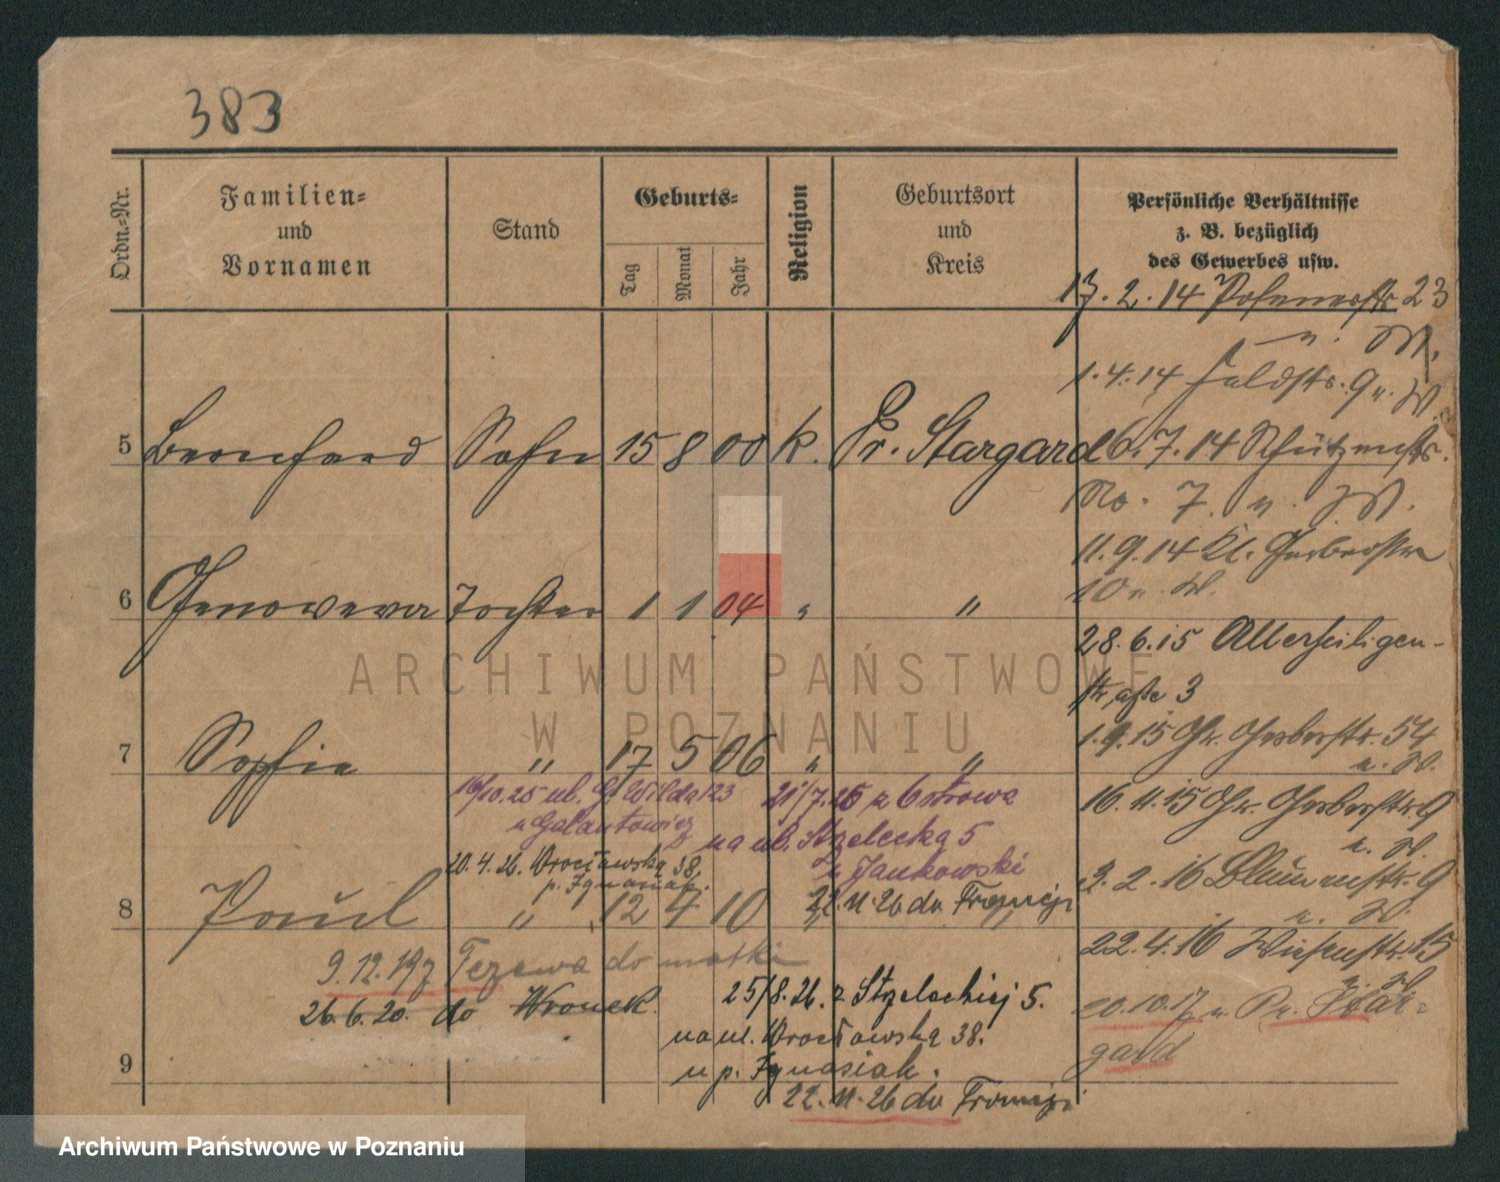 383
Ordn.-Nr.
Familien-
und
Vornamen
Stand
Geburts-
Tag
Monat
Jahr
Religion
Geburtsort
und
Kreis
Persönliche Verhältnisse
z. B. bezüglich
des Gewerbes usw.
13.2.14 Posenerstr. 23
v. W.
1.4.14 Feldstr. 9 v. W.
5 Bernhard Sohn 15 8 00 k. Pr. Stargard
6.7.14 Schützenstr.
No. 7. v. W.
11.9.14 Kl. Gerberstr
10 v. W.
6 Genoveva Tochter 1 1 04 " "
28.6.15 Allerheiligen-
straße 3
1.9.15 Gr. Gerberstr. 54
v. W.
7 Sophie " 17 5 06 " "
16/10.25 ul. G. Wilda 123
u Galantowicz
20.4.26. Wrocławska 38,
p. Ignasiak.
21/7.26 z Ostrowa
na ul. Strzelecką 5
u Jankowski
22.11.26 do Francji
16.11.15 Gr. Gerberstr. 9
v. W.
2.2.16 Blumenstr. 9
v. W.
8 Paul " 12 4 10 " "
22.4.16 Wiesenstr. 15
v. W.
9.12.19 z Tczewa do matki
26.6.20. do Wronek.
25/8.26. z Strzeleckiej 5.
na ul. Wrocławską 38.
u p. Ignasiak.
22.11.26 do Francji
20.10.17 v. Pr. Star-
gard
9
ARCHIWUM PAŃSTWOWE
W POZNANIU
Archiwum Państwowe w Poznaniu